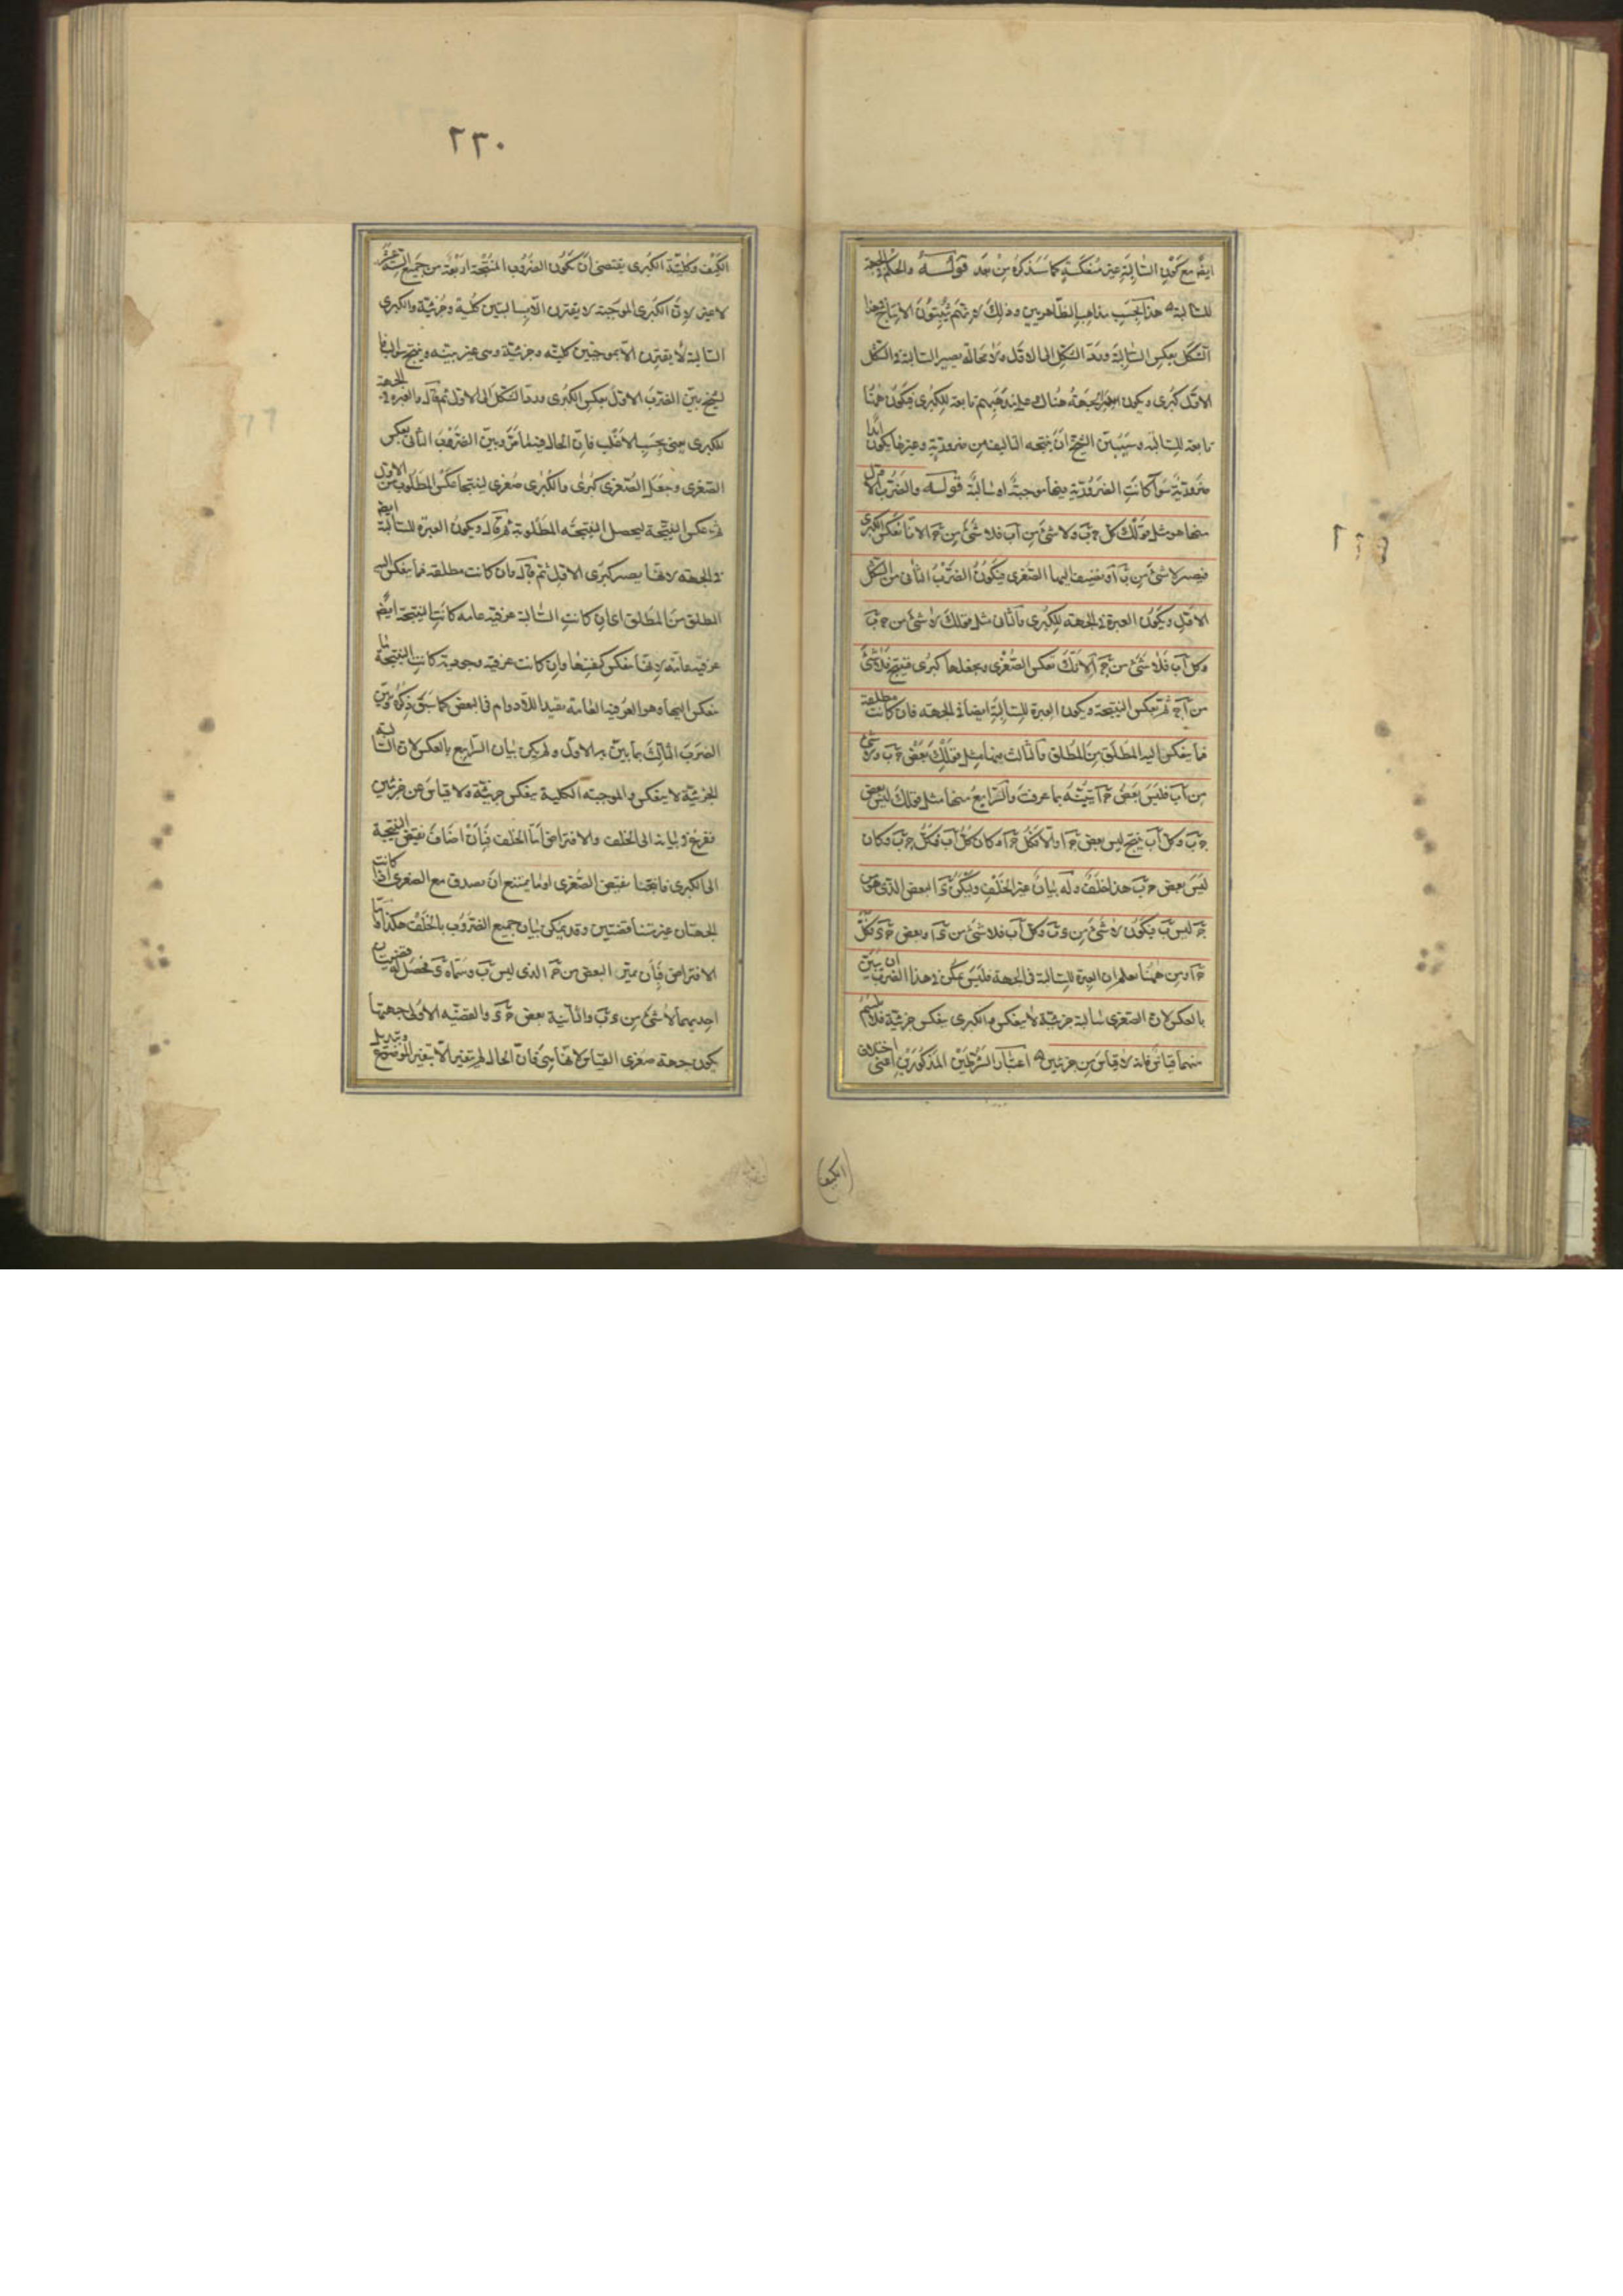 ايضا مع كون السالبة غير منعكسة كما سنذكره من بعد قوله والحكم في الجهة
للسالبة هذا بحسب مذاهب الظاهريين وذلك لانهم يثبتون الانتاج هذا
الشكل بعكس السالبة ورد الشكل الى الاول ولا محالة يصير السالبة في الشكل
الاول كبرى ويكون الجهة هناك على مذهبهم تابعة للكبرى فيكون ههنا
تابعة للسالبة وسيبين الشيخ ان نتيجة التاليف من ضرورية وغيرها يكون ابدا
ضرورية سوآ كانت الضرورية منها موجبة او سالبة قوله والضرب الاول
منها هو مثل قولك كل ج ب ولا شئ من آ ب فلا شئ من ج آ لانا نعكس الكبرى
فيصير لا شئ من ب آ ونضيف اليها الصغرى فيكون الضرب الثانى من الشكل
الاول ويكون العبرة في الجهة للكبرى والثانى مثل قولك لا شئ من ج ب
وكل آ ب فلا شئ من ج آ لانك تعكس الصغرى وتجعلها كبرى فينتج فلا شئ
من آ ج ثم تعكس النتيجة ويكون العبرة للسالبة ايضا في الجهة فان كانت مطلقة
فما ينعكس اليه المطلق من المطلق والثالث منها مثل قولك بعض ج ب ولا شئ
من آ ب فليس بعض ج آ تبينه بما عرفت والرابع منها مثل قولك ليس بعض
ج ب وكل آ ب ينتج ليس بعض ج آ والا فكل ج آ وكان كل آ ب فكل ج ب وكان
ليس بعض ج ب هذا خلف وله بيان غير الخلف وليكن د البعض الذى هو من
ج ليس ب فيكون لا شئ من د ب وكل آ ب فلا شئ من د آ وبعض ج د فلا كل
ج آ ومن ههنا تعلم ان العبرة للسالبة فى الجهة فليس يمكن في هذا الضرب ان يبين
بالعكس لان الصغرى سالبة جزئية لا ينعكس والكبرى ينعكس جزئية فلا يلتئم
منهما قياس فانه لا قياس من جزئيين اعتبار الشرطين المذكورين اعنى اختلاف
(الكيف)
٢٢٩
٢٣٠
الكيف وكلية الكبرى يقتضى ان تكون الضروب المنتجة اربعة من جميع الستة عشر
لا غير لان الكبرى الموجبة لا يقترن الا بسالبتين كلية وجزئية والكبرى
السالبة لا يقترن الا بموجبتين كلية وجزئية وهى غير بينة وينتج سوالب فا
لشيخ بين الضرب الاول بعكس الكبرى ورد الشكل الى الاول ثم قال والعبرة في الجهة
للكبرى يعنى بحسب الاغلب فان الحال فيه كما مر وبين الضرب الثانى بعكس
الصغرى وجعل الصغرى كبرى والكبرى صغرى لينتجا عكس المطلوب من الاول
ثم عكس النتيجة ليحصل النتيجة المطلوبة ثم قال ويكون العبرة للسالبة ايضا
في الجهة لانها يصير كبرى الاول ثم قال وان كانت مطلقة فما ينعكس اليه
المطلق من المطلق اى ان كانت السالبة عرفية عامة كانت النتيجة ايضا
عرفية عامة لانها تنعكس كنفسها وان كانت عرفية وجودية كانت النتيجة ما
تنعكس اليها وهو العرفية العامة مقيدا اللادوام فى البعض كما سبق ذكره وبين
الضرب الثالث بما بين به الاول ولم يمكن بيان الرابع بالعكس لان السالبة
الجزئية لا ينعكس والموجبة الكلية ينعكس جزئية ولا قياس عن جزئيين
ففزع في بيانه الى الخلف والافتراض اما الخلف فبان اضاف نقيض النتيجة
الى الكبرى فانتجتا نقيض الصغرى او ما يمتنع ان يصدق مع الصغرى اذا كانت
الجهتان غير متناقضتين وقد يمكن بيان جميع الضروب بالخلف هكذا واما
الافتراض فبان عين البعض من ج الذى ليس ب وسماه د فحصل له قضيتان
احديهما لا شئ من د ب والثانية بعض ج د والقضية الاولى جهتها
يكون جهة صغرى القياس لانها هى فان الحال لم يتغير الا بتغير الموضوع وتبديل